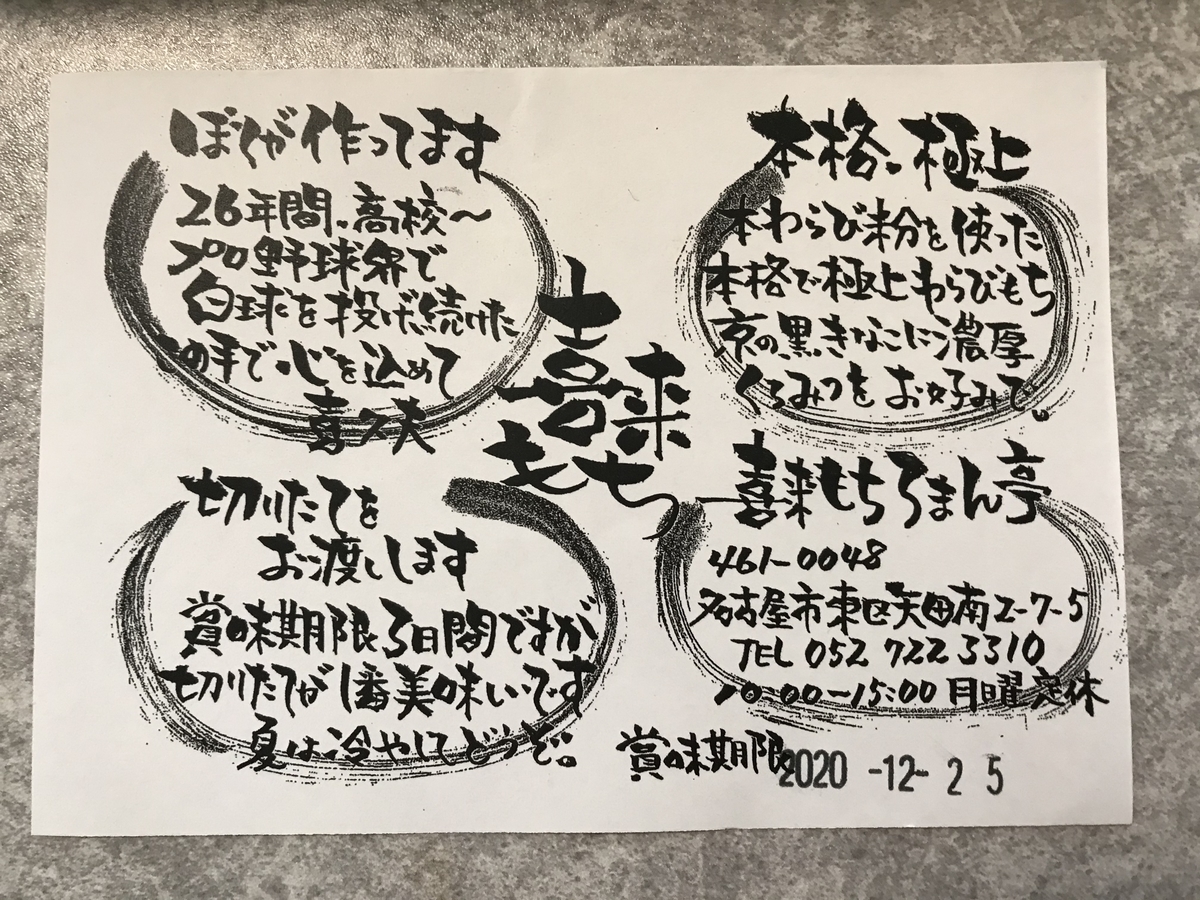 ぼくが作ってます
26年間、高校〜
プロ野球界で
白球を投げ続けた
この手で心を込めて
喜久夫
喜来
もち
本格、極上
本わらび粉を使った
本格で極上わらびもち
京の黒きなこに濃厚
くろみつをお好みで。
切りたてを
お渡しします
賞味期限3日間ですが
切りたてが1番美味いです
夏は冷やしてどうぞ。
喜来もちろまん亭
461-0048
名古屋市東区矢田南2-7-5
TEL 052 722 3310
10:00〜15:00 月曜定休
賞味期限 2020 -12- 25